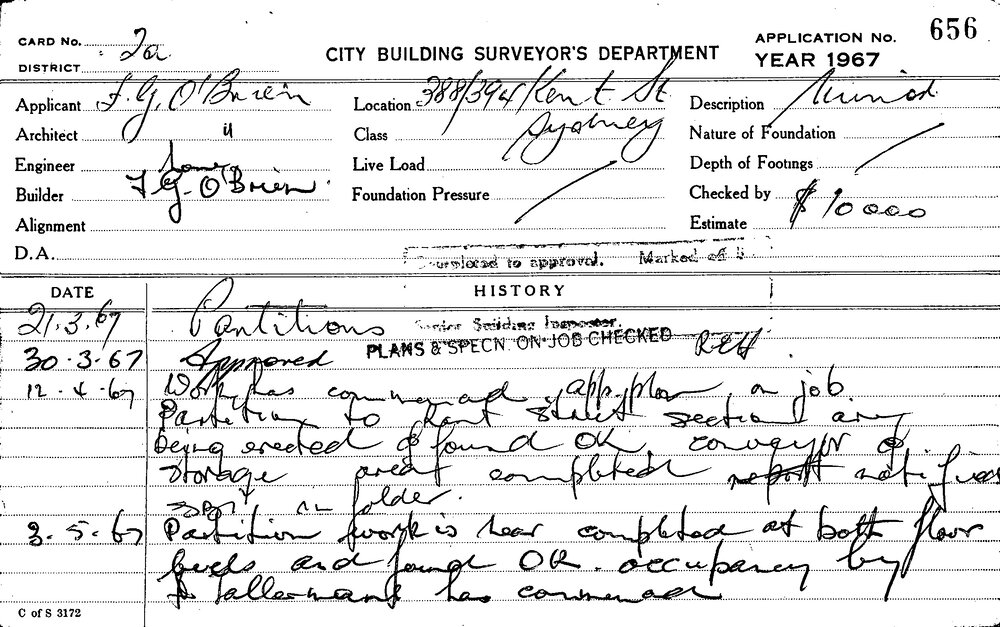 CARD No. 2a
DISTRICT
CITY BUILDING SURVEYOR'S DEPARTMENT
APPLICATION No. 656
YEAR 1967
Applicant F.G. O'Brien
Architect "
Engineer
Builder F G. O'Brien
Alignment
D.A.
Location 388/394 Kent St
Class Sydney
Live Load
Foundation Pressure
Description
Nature of Foundation
Depth of Footings
Checked by
Estimate $10000
Completed to approval. Marked off
DATE HISTORY
21.3.67 Partitions
Senior Building Inspector.
PLANS & SPECN. ON JOB CHECKED
30.3.67 Approved
12.4.67 Work has commenced, app. plan on job.
Partition to Kent Street section are
being erected & found OK. conveyor &
storage area completed
in folder.
3.5.67 Partition work is near completed at both floor
levels and found OK. occupancy by
has commenced
C of S 3172